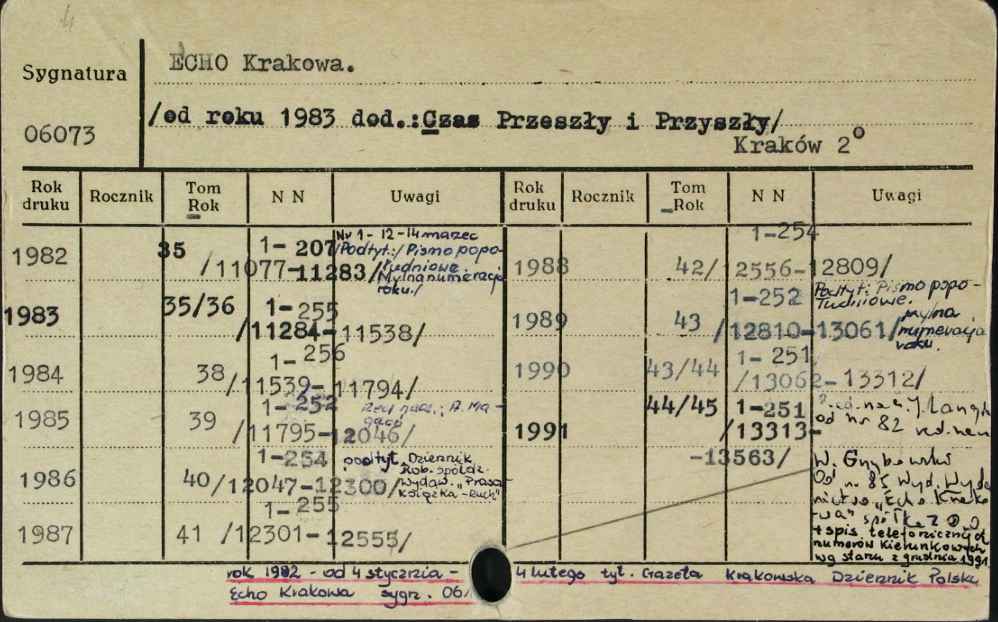 4
Sygnatura
06073
ECHO Krakowa.
/od roku 1983 dod.:Czas Przeszły i Przyszły/
Kraków 2°
Rok druku Rocznik Tom Rok N N Uwagi Rok druku Rocznik Tom Rok N N Uwagi
1982 35 1-207
/11077-11283/
Nr 1- 12-14 marzec
/Podtyt:/ Pismo popo-
łudniowe.
Mylna numeracja
roku./
1983 35/36 1-255
/11284-11538/
1984 38 1-256
/11539-11794/
1985 39 1-252
/11795-12046/
Red. nacz.: A. Ma-
1986 40 1-254
/12047-12300/
podtyt. Dziennik
Rob. spółdz.
wydaw. „Prasa-
Książka-Ruch"
1987 41 1-255
/12301-12555/
1988 42/ 1-254
12556-12809/
1989 43 1-252
/12810-13061/
Podtyt: Pismo popo-
łudniowe.
mylna
numeracja
roku.
1990 43/44 1-251
/13062-13312/
1991 44/45 1-251
/13313-
-13563/
od nr 82 red. nacz.
W. Grzybowski
Od nr 85 Wyd. Wyda
nictwo „Echo Krako
-wa" spółka z o.o
+ spis telefonicznych
numerów kierunkowych
wg stanu z grudnia 1991.
rok 1982 - od 4 stycznia - 4 lutego tyt. Gazeta Krakowska Dziennik Polski
Echo Krakowa sygn. 06